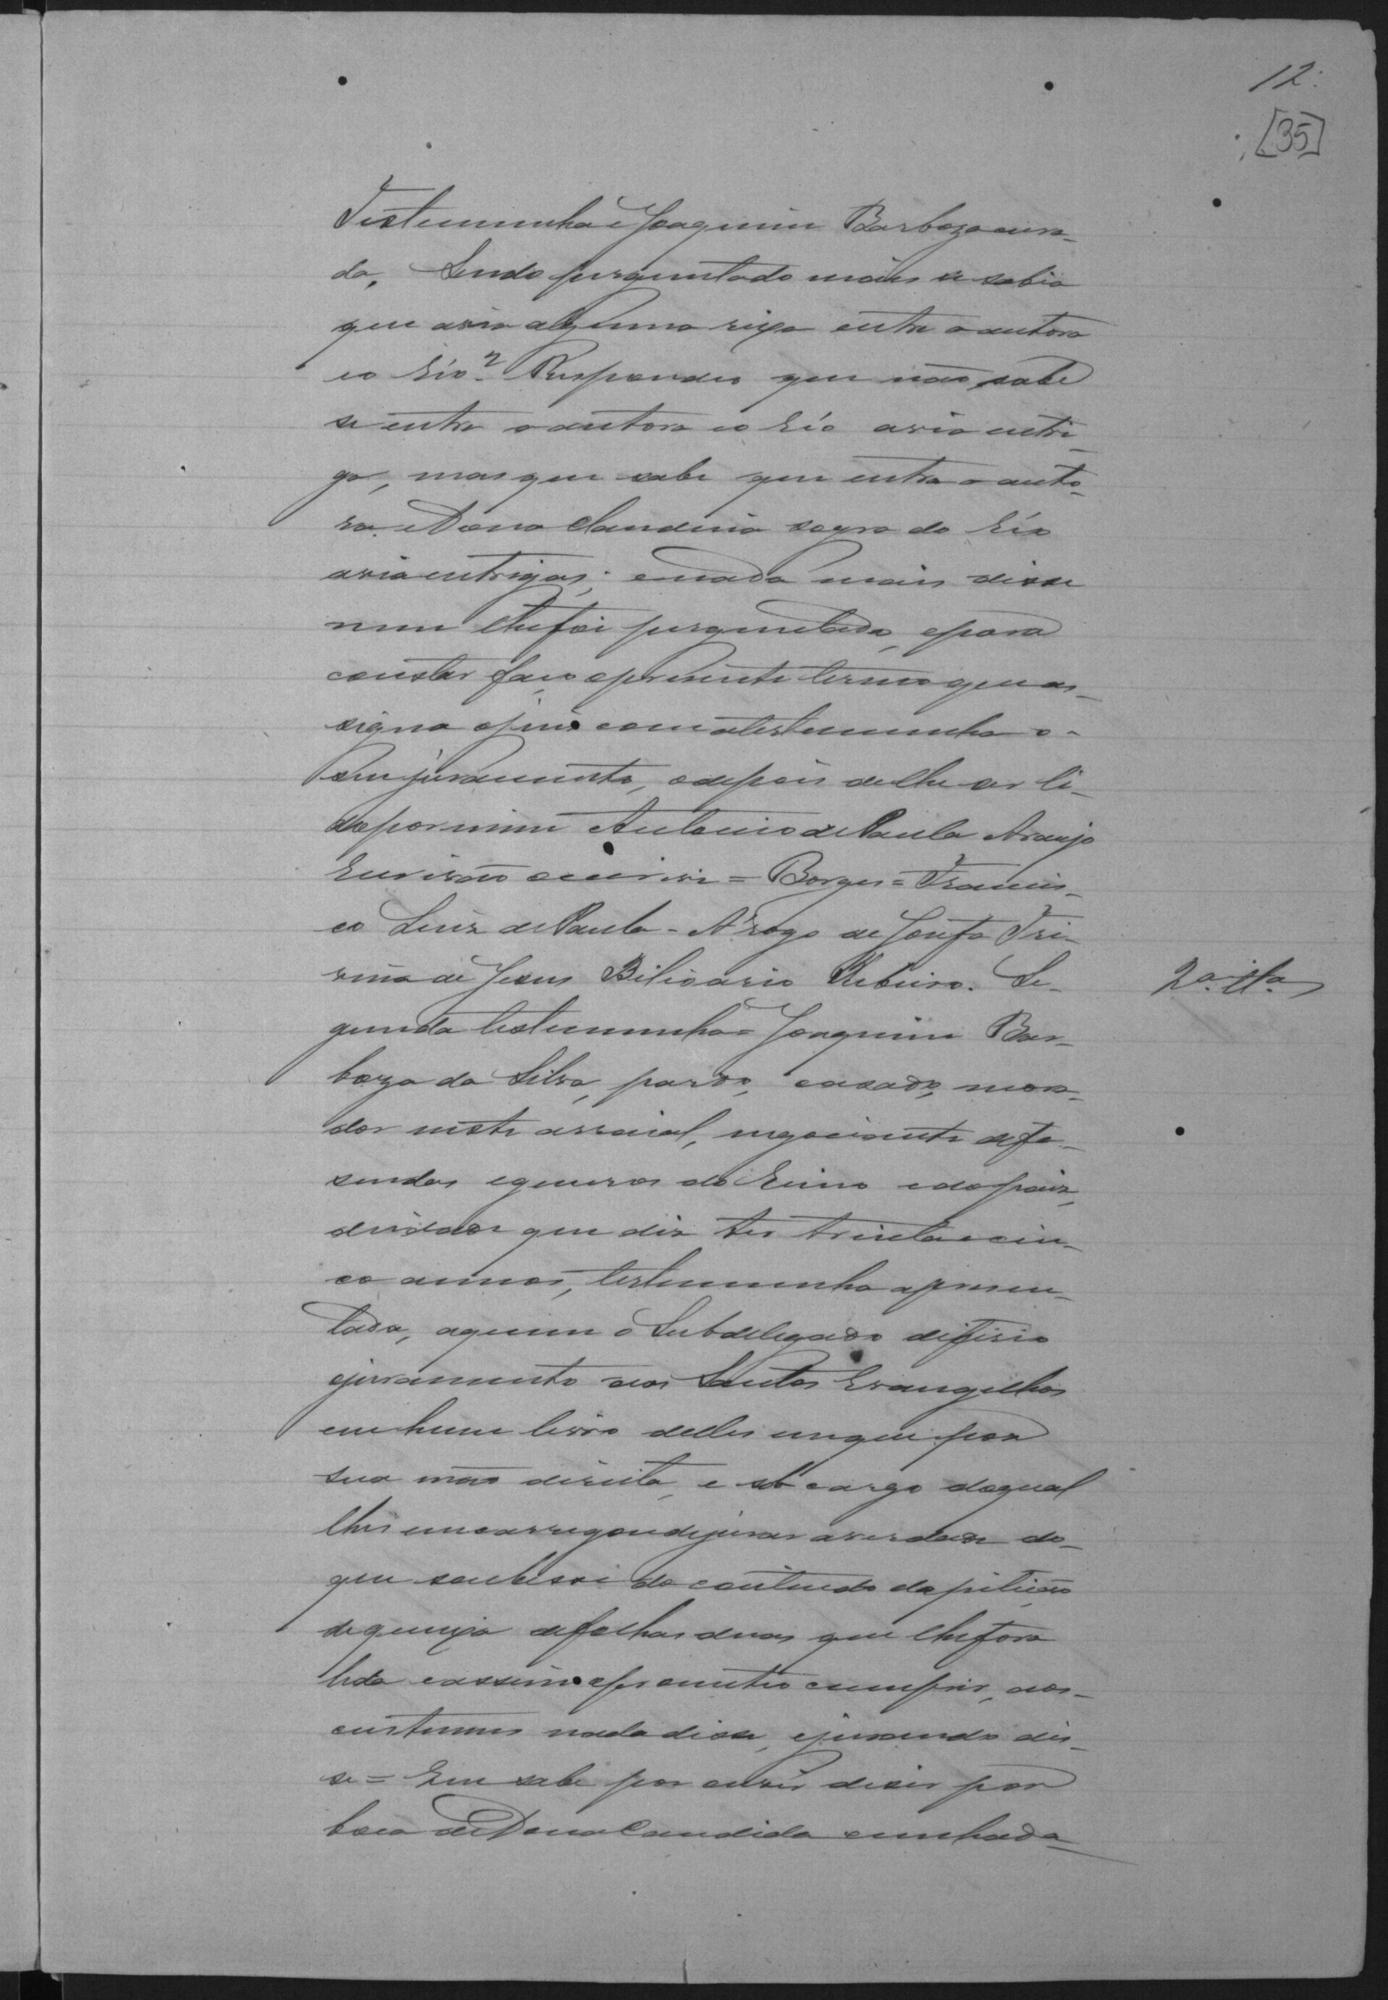 12.
[35]
Testemunha e Joaquim Barboza cura-
do, Sendo perguntado mais se sabia
que avia alguma rixa entre a autora
eo Réo? Respondeo que não sabe
se entre a autora eo Réo avia entri-
ga, mas que sabe que entre a auto-
ra e Dona Claudina sogra do Réo
avia entrigas; e nada mais disse
nem lhe foi perguntado, e para
constar faço o presente termo que as-
signa o juiz com a testemunha o
seu juramento, e depois de lhe ser li-
do por mim Antonio de Paula Araujo
Escrivão o escrivi = Borges = Francis-
co Luiz de Paula - A rogo de Jozefa Tri-
 de Jesus Bilisario Ribeiro. Se-
2ª. tta
gunda testemunha = Joaquim Bar-
boza da Silva, pardo, casado, mora-
dor neste arraial, negociante de fa-
sendas e generos do Reino e do paiz,
de idade que diz ter trinta e cin-
co annos, testemunha apresen-
tada, aquem o Subdelegado diferio
o juramento aos Santos Evangelhos
em hum livro delles em que por
sua mão direita, e sob cargo do qual
lhes encarregou de jurar a verdade do
que soubesse do contheudo da petição
de queixa de folhas duas que lhe fora
lida e assim o prometeo cumprir, aos
custumes nada disse, e jurando dis-
se = Que sabe por ouvir diser por
boca de Dona Candida cunhada